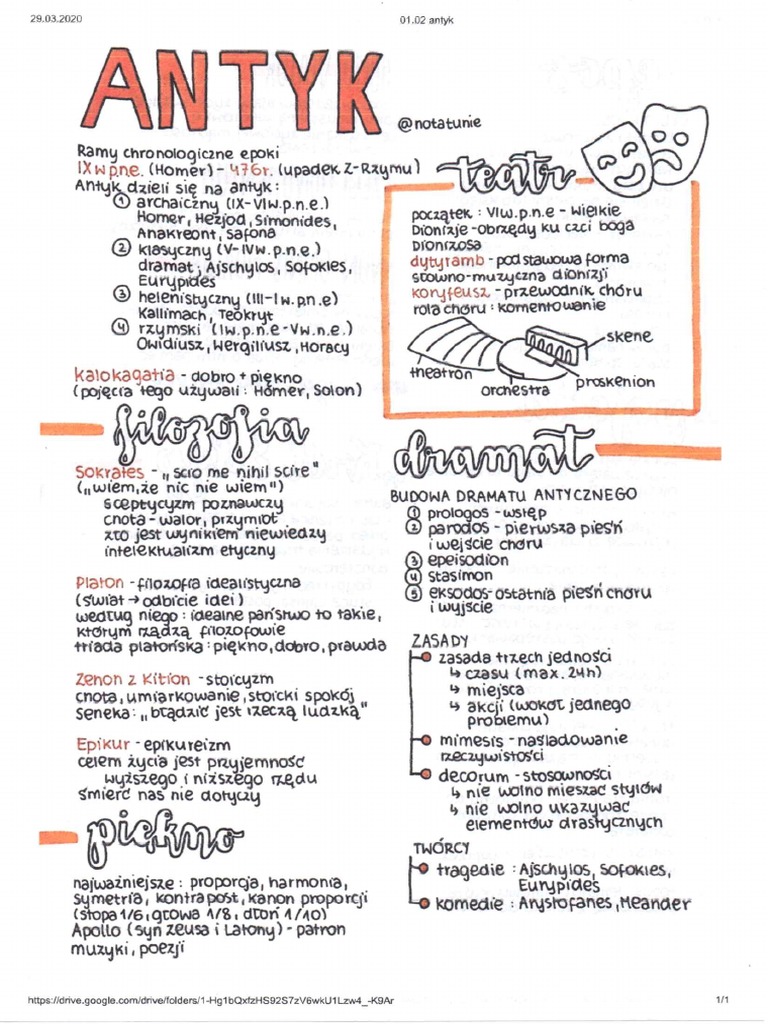 29.03.2020
01.02 antyk
ANTYK
@notatunie
Ramy chronologiczne epoki
IX w p.n.e. (Homer) - 476r. (upadek Z-Rzymu)
Antyk dzieli się na antyk:
① archaiczny (IX-VIw.p.n.e.)
Homer, Hezjod, Simonides,
Anakreont, Safona
② klasyczny (V-IVw. p.n.e.)
dramat: Ajschylos, Sofokles,
Eurypides
③ helenistyczny (III-I w. p.n.e)
Kallimach, Teokryt
④ rzymski (Iw.p.n.e-Vw.n.e.)
Owidiusz, Wergiliusz, Horacy
kalokagatia - dobro + piękno
(pojęcia tego używali: Homer, Solon)
teatr
początek: VIw.p.n.e - Wielkie
Dionizje - obrzędy ku czci boga
Dionizosa
dytyramb - podstawowa forma
słowno-muzyczna dionizji
koryfeusz - przewodnik chóru
rola chóru: komentowanie
skene
theatron
proskenion
orchestra
filozofia
Sokrates - „scio me nihil scire"
(„wiem, że nic nie wiem")
sceptycyzm poznawczy
cnota - walor, przymiot
zło jest wynikiem niewiedzy
intelektualizm etyczny
Platon - filozofia idealistyczna
(świat → odbicie idei)
według niego: idealne państwo to takie,
którym rządzą filozofowie
triada platońska: piękno, dobro, prawda
Zenon z Kition - stoicyzm
cnota, umiarkowanie, stoicki spokój
Seneka: „błądzić jest rzeczą ludzką"
Epikur - epikureizm
celem życia jest przyjemność
wyższego i niższego rzędu
śmierć nas nie dotyczy
piękno
najważniejsze: proporcja, harmonia,
symetria, kontrapost, kanon proporcji
(stopa 1/6, głowa 1/8, dłoń 1/10)
Apollo (syn Zeusa i Latony) - patron
muzyki, poezji
dramat
BUDOWA DRAMATU ANTYCZNEGO
① prologos - wstęp
② parodos - pierwsza pieśń
i wejście chóru
③ epeisodion
④ stasimon
⑤ eksodos - ostatnia pieśń chóru
i wyjście
ZASADY
zasada trzech jedności
↳ czasu (max. 24h)
↳ miejsca
↳ akcji (wokół jednego
problemu)
mimesis - naśladowanie
rzeczywistości
decorum - stosowności
↳ nie wolno mieszać stylów
↳ nie wolno ukazywać
elementów drastycznych
TWÓRCY
tragedie: Ajschylos, Sofokles,
Eurypides
komedie: Arystofanes, Meander
https://drive.google.com/drive/folders/1-Hg1bQxfzHS92S7zV6wkU1Lzw4_-K9Ar
1/1